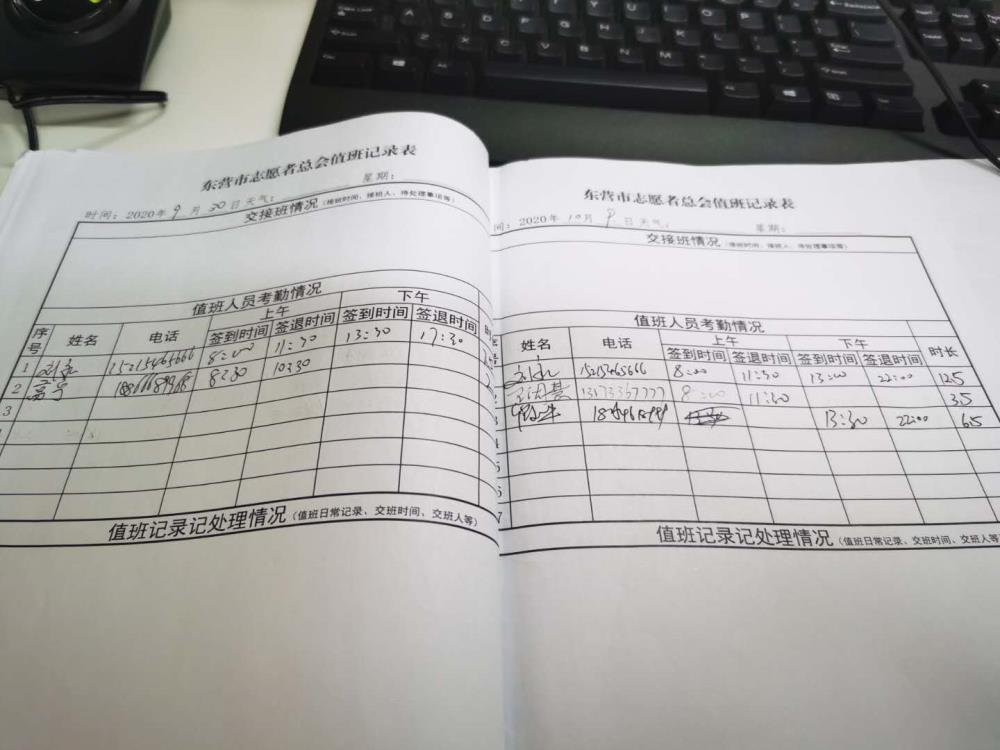 东营市志愿者总会值班记录表
时间：2020年9月30日天气： 星期：
交接班情况（接班时间、接班人、待处理事项等）
值班人员考勤情况
序号 姓名 电话 上午 下午
签到时间 签退时间 签到时间 签退时间
1 15215465666 8:00 11:30 13:30 17:30
2 8:30 10:30
3
值班记录记处理情况（值班日常记录、交班时间、交班人等）
东营市志愿者总会值班记录表
间：2020年10月 日天气： 星期：
交接班情况（接班时间、接班人、待处理事项等）
值班人员考勤情况
姓名 电话 上午 下午 时长
签到时间 签退时间 签到时间 签退时间
15215465666 8:00 11:30 13:00 22:00 12.5
13573367777 8:00 11:30 3.5
13:30 22:00 6.5
值班记录记处理情况（值班日常记录、交班时间、交班人等